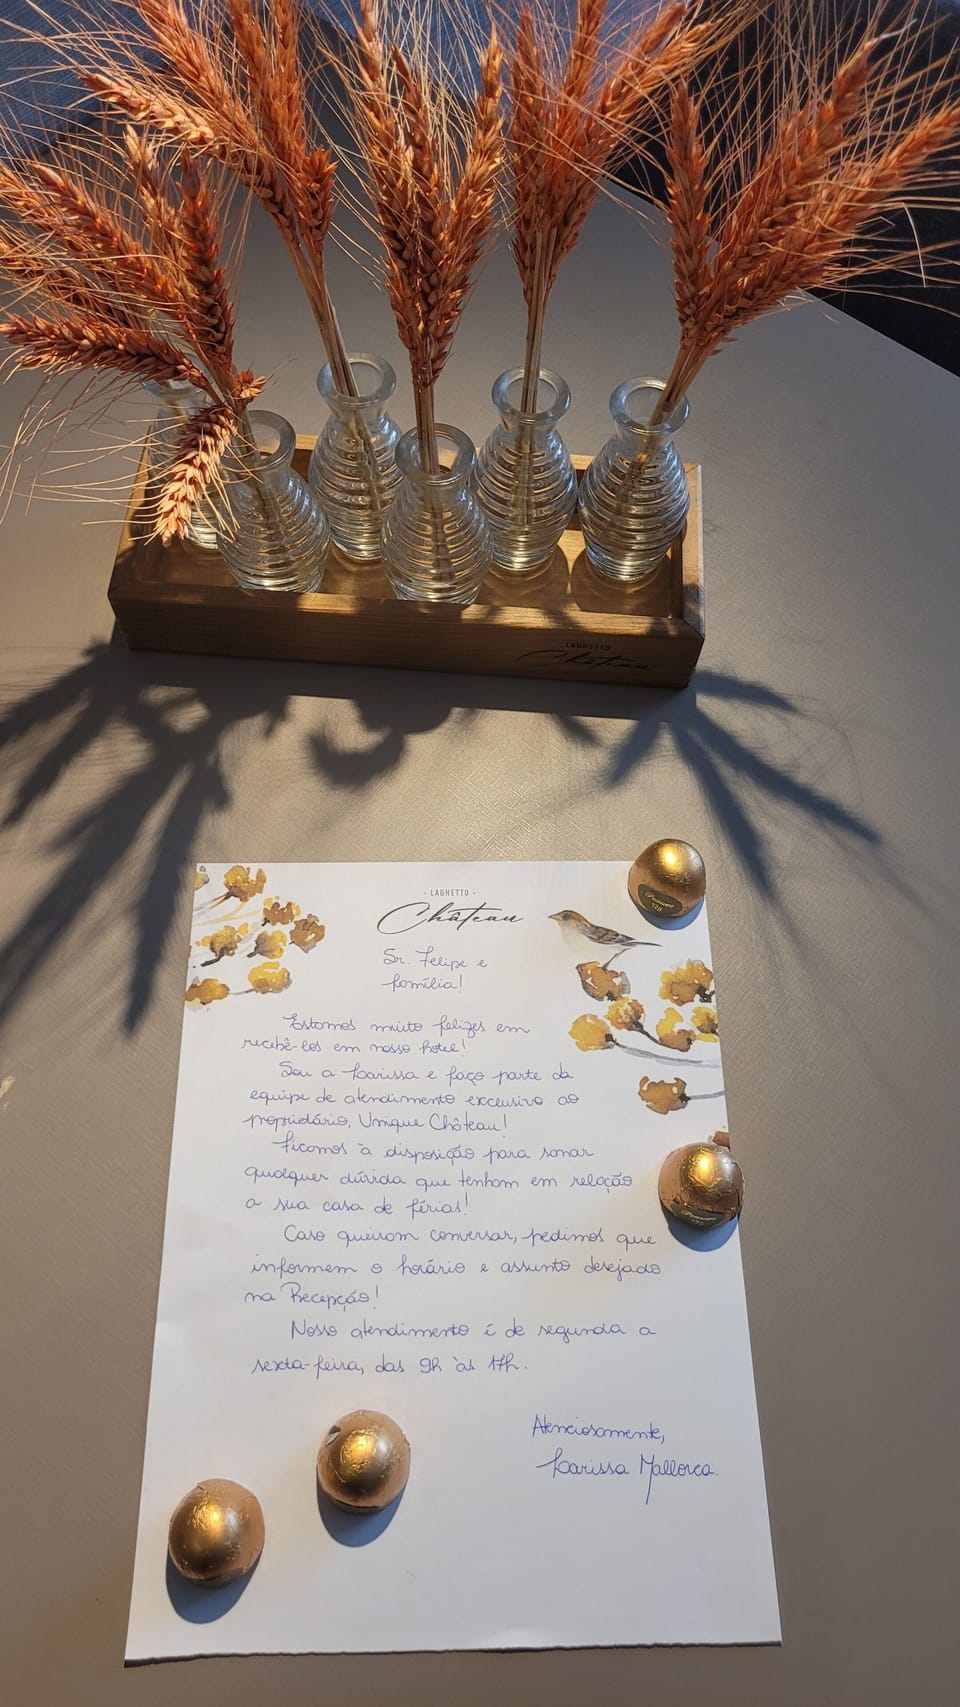 LAGHETTO
Château
- LAGHETTO -
Château
Sr. Felipe e
família!
Estamos muito felizes em
recebê-los em nosso hotel!
Sou a Larissa e faço parte da
equipe de atendimento exclusivo ao
proprietário, Unique Château!
Ficamos à disposição para sanar
qualquer dúvida que tenham em relação
a sua casa de férias!
Caso queiram conversar, pedimos que
informem o horário e assunto desejado
na Recepção!
Nosso atendimento é de segunda a
sexta-feira, das 9h às 17h.
Atenciosamente,
Larissa Mallorca.